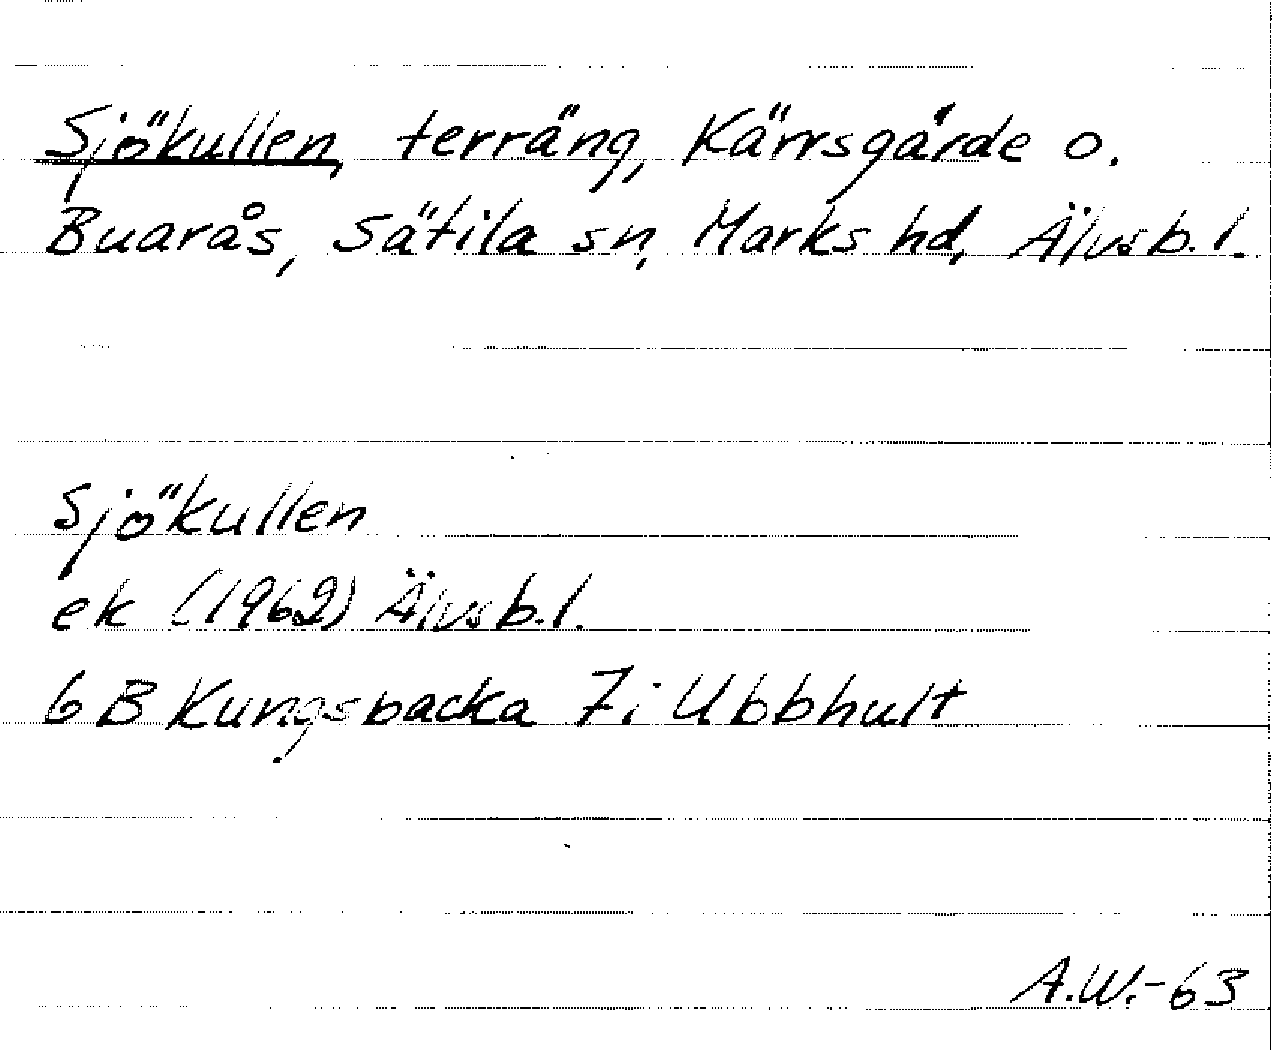 Sjökullen, terräng, Kärrsgärde o.
Buarås, Sätila sn, Marks hd, Älvsb. l.
Sjökullen
ek (1962) Älvsb. l.
6 B Kungsbacka 7i Ubbhult
A.W.-63